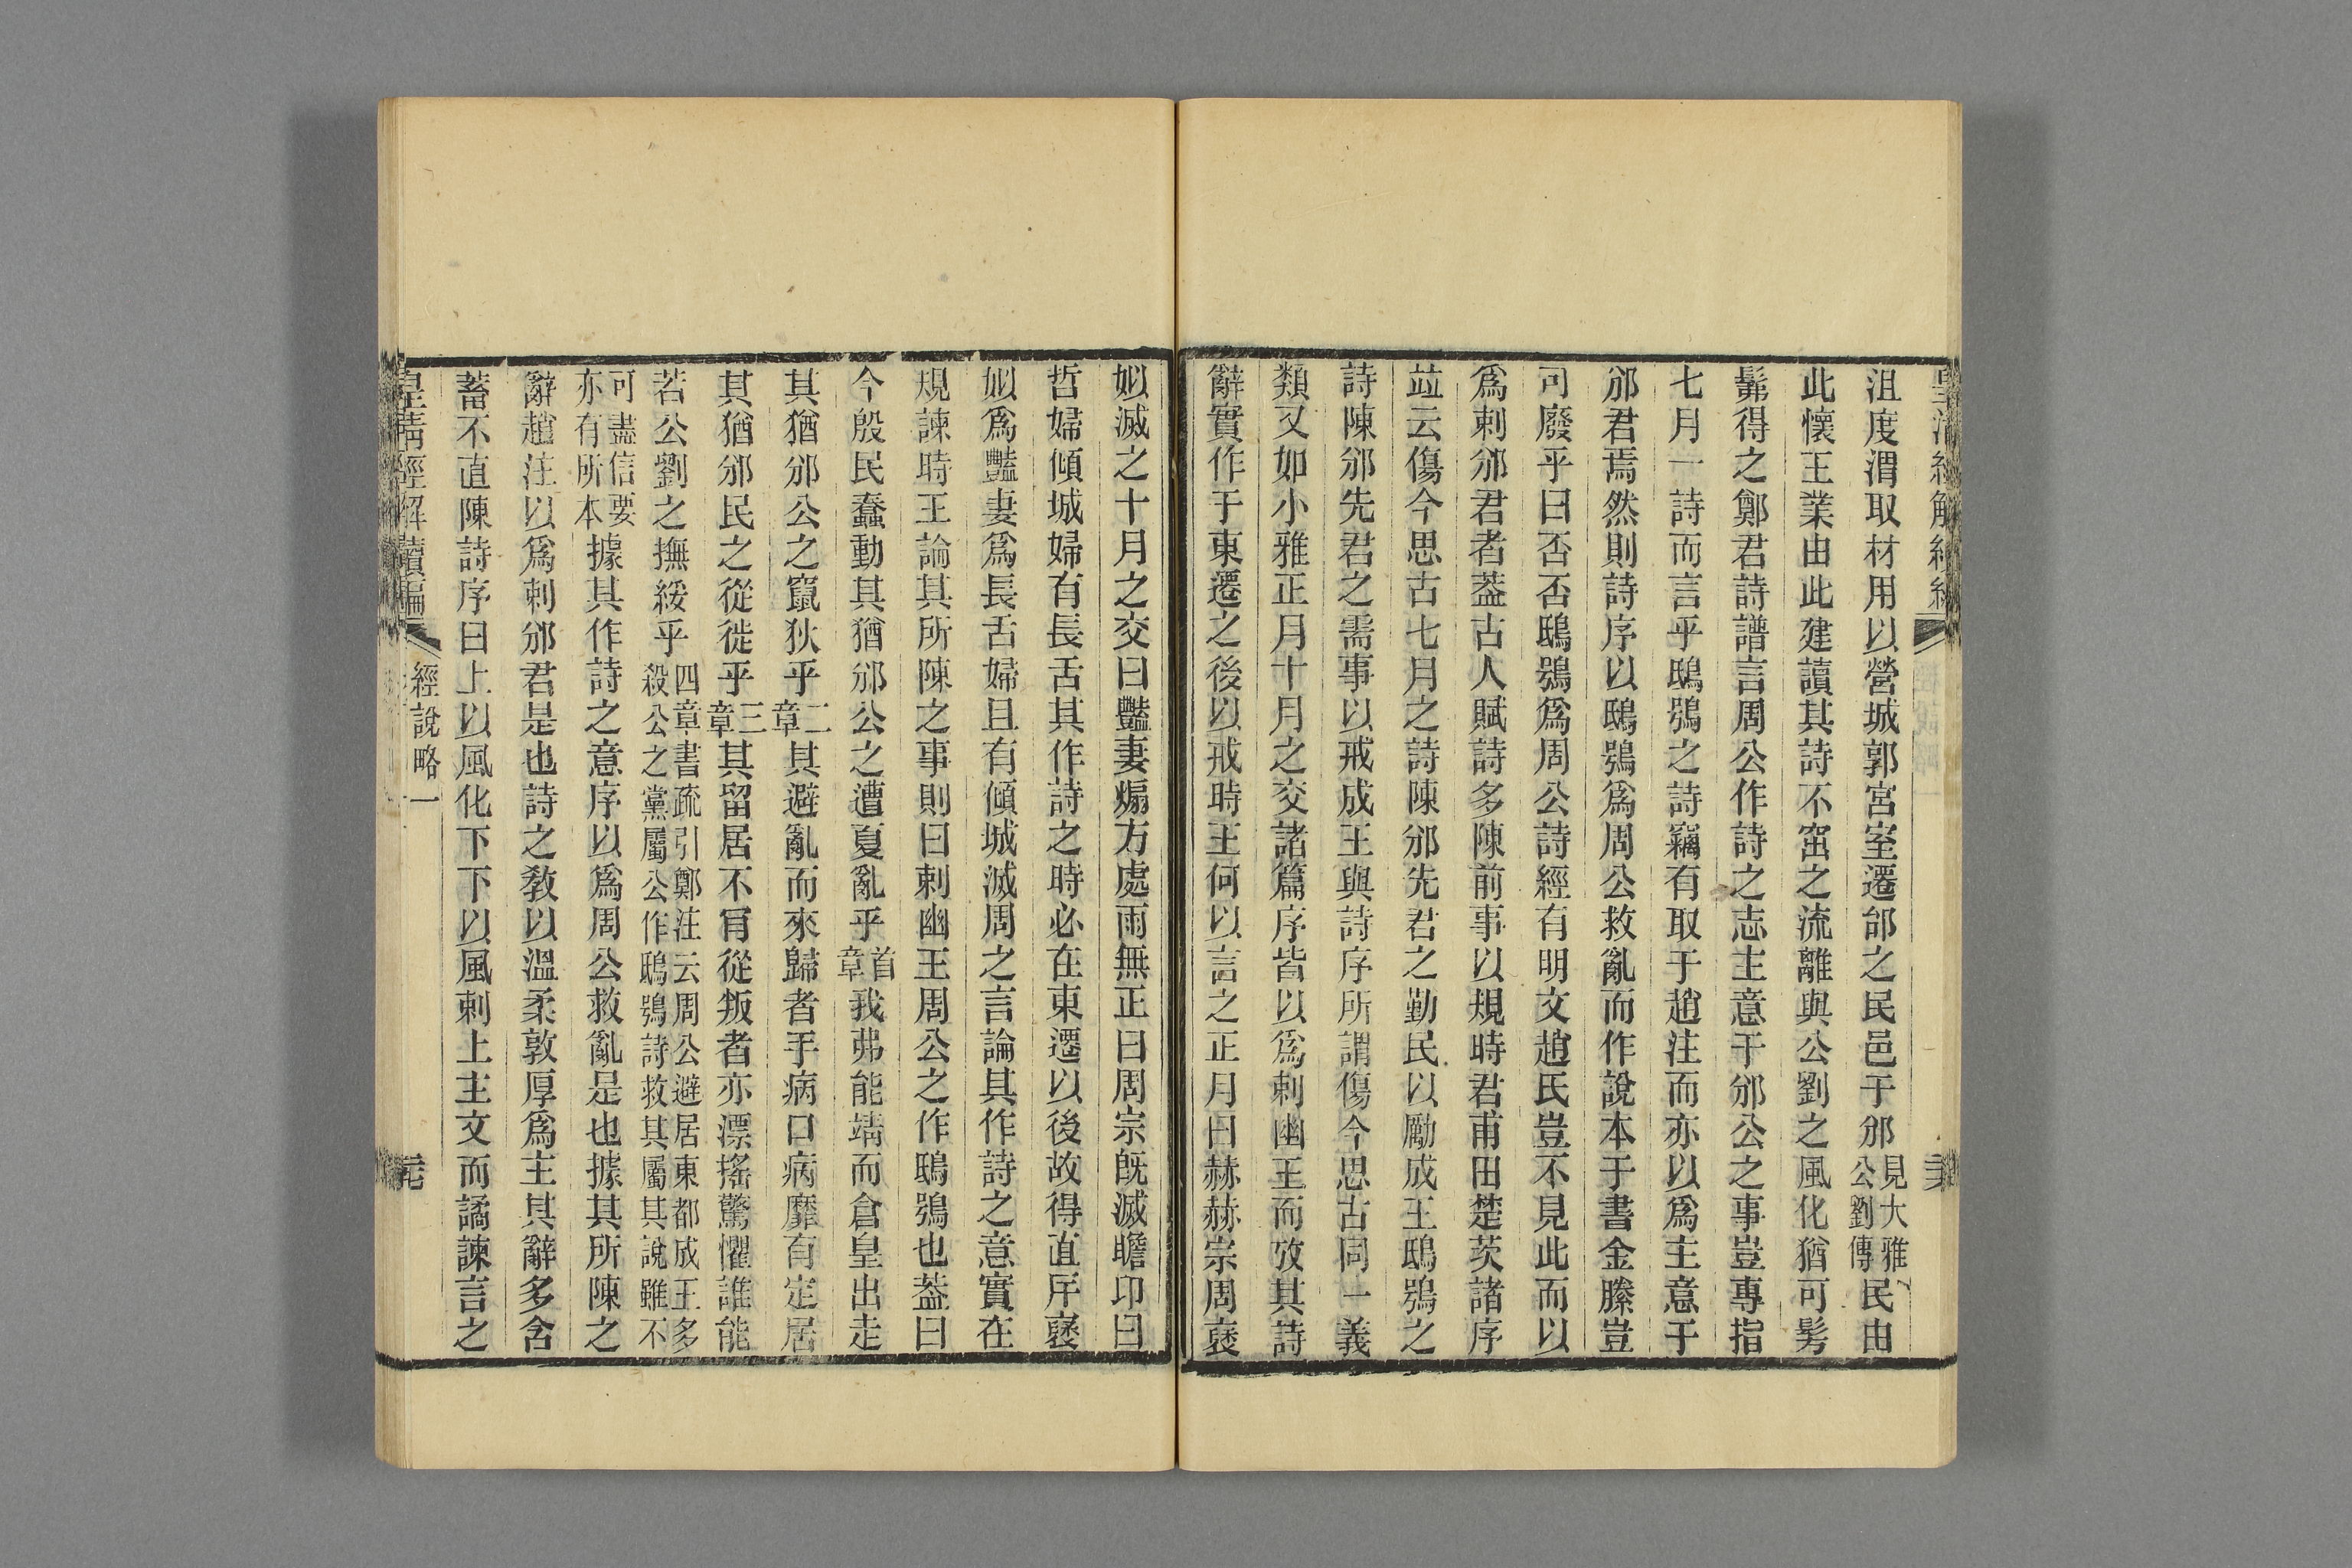 沮度渭取材用以營城郭宮室遷邰之民邑于邠見大雅公劉傳民由
此懷王業由此建讀其詩不窋之流離與公劉之風化猶可髣
髴得之鄭君詩譜言周公作詩之志主意于邠公之事豈專指
七月一詩而言乎鴟鴞之詩竊有取于趙注而亦以爲主意于
邠君焉然則詩序以鴟鴞爲周公救亂而作說本于書金縢豈
可廢乎曰否否鴟鴞爲周公詩經有明文趙氏豈不見此而以
爲刺邠君者葢古人賦詩多陳前事以規時君甫田楚茨諸序
竝云傷今思古七月之詩陳邠先君之勤民以勵成王鴟鴞之
詩陳邠先君之需事以戒成王與詩序所謂傷今思古同一義
類又如小雅正月十月之交諸篇序皆以爲刺幽王而攷其詩
辭實作于東遷之後以戒時王何以言之正月曰赫赫宗周褒
姒滅之十月之交曰豔妻煽方處雨無正曰周宗旣滅瞻卬曰
哲婦傾城婦有長舌其作詩之時必在東遷以後故得直斥褒
姒爲豔妻爲長舌婦且有傾城滅周之言論其作詩之意實在
規諫時王論其所陳之事則曰刺幽王周公之作鴟鴞也葢曰
今殷民蠢動其猶邠公之遭夏亂乎首章我弗能靖而倉皇出走
其猶邠公之竄狄乎二章其避亂而來歸者手病口病靡有定居
其猶邠民之從徙乎三章其留居不肎從叛者亦漂搖驚懼誰能
若公劉之撫綏乎四章書疏引鄭注云周公避居東都成王多殺公之黨屬公作鴟鴞詩救其屬其說雖不
可盡信要亦有所本據其作詩之意序以爲周公救亂是也據其所陳之
辭趙注以爲刺邠君是也詩之敎以溫柔敦厚爲主其辭多含
蓄不直陳詩序曰上以風化下下以風刺上主文而譎諫言之
皇清經解續編
經說略一